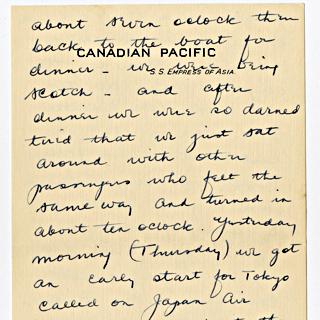 about seven oclock then
back to the boat for
CANADIAN PACIFIC
dinner - we were being
S.S. EMPRESS OF ASIA
scotch - and after
dinner we were so darned
tired that we just sat
around with other
passengers who felt the
same way and turned in
about ten oclock. Yesterday
morning (Thursday) we got
an early start for Tokyo
called on Japan Air